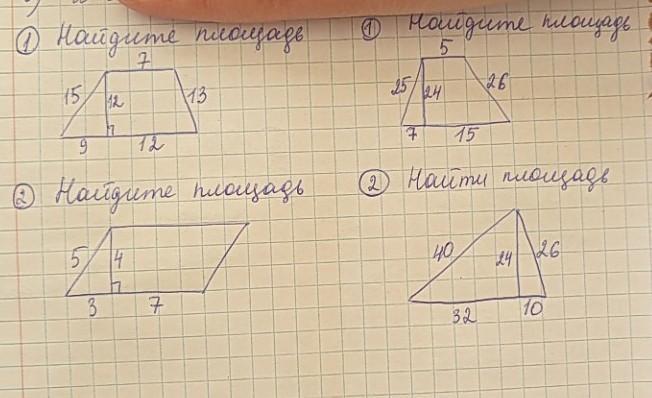 ① Найдите площадь
7
15 12 13
9 12
② Найдите площадь
5 4
3 7
① Найдите площадь
5
25 24 26
7 15
② Найти площадь
40 24 26
32 10